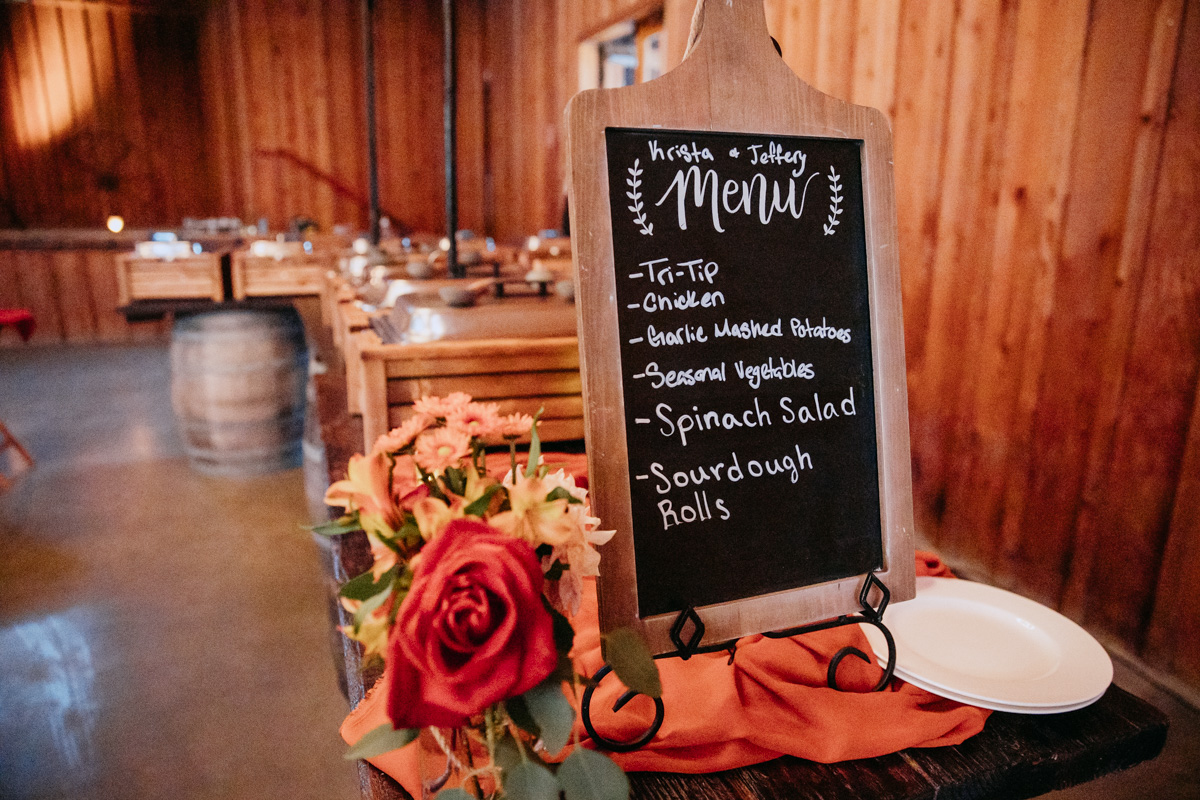 Krista & Jeffery
Menu
-Tri-Tip
-Chicken
-Garlic Mashed Potatoes
-Seasonal Vegetables
-Spinach Salad
-Sourdough
Rolls